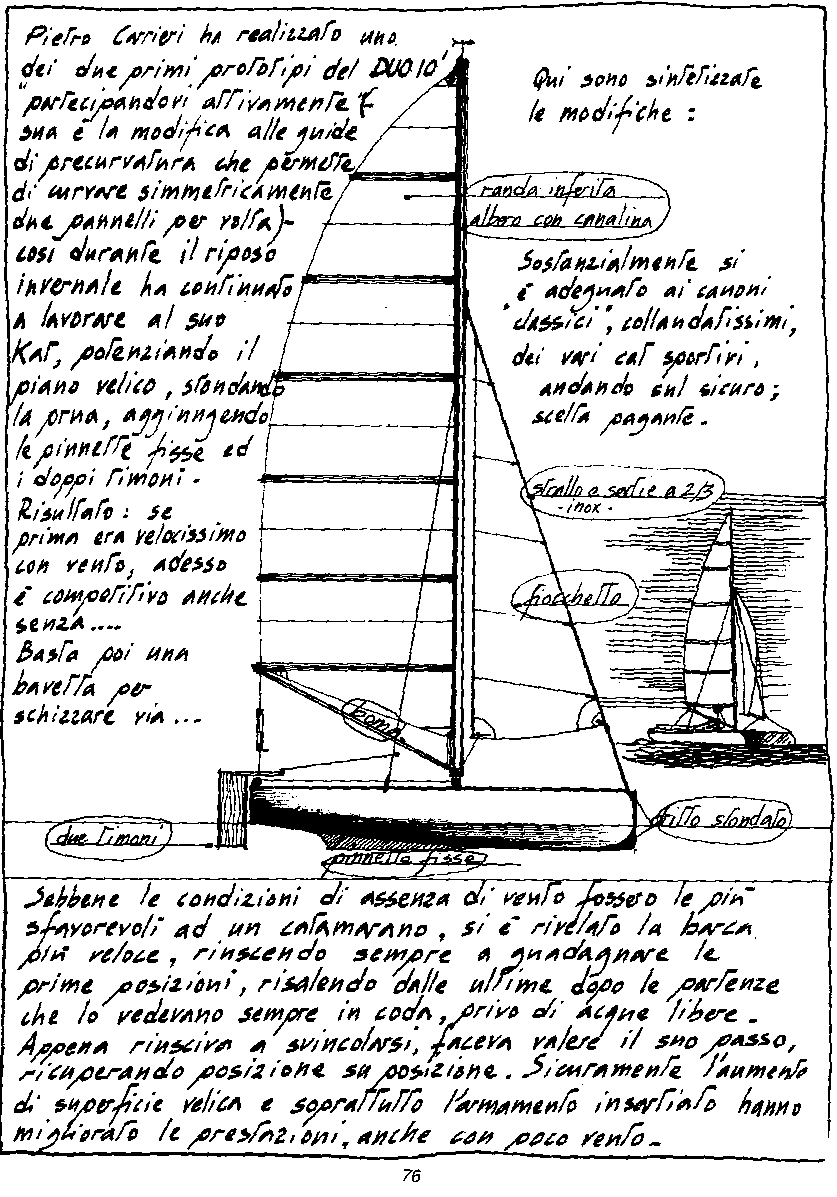 Pietro Carrieri ha realizzato uno
dei due primi prototipi del DUO 10'
"partecipandovi attivamente" (
sua è la modifica alle guide
di precurvatura che permette
di curvare simmetricamente
due pannelli per volta)-
così durante il riposo
invernale ha continuato
a lavorare al suo
Kat, potenziando il
piano velico, sfondando
la prua, aggiungendo
le pinnette fisse ed
i doppi timoni.
Risultato: se
prima era velocissimo
con vento, adesso
è competitivo anche
senza....
Basta poi una
bavetta per
schizzare via ...
Qui sono sintetizzate
le modifiche :
randa inferita
albero con canalina
Sostanzialmente si
è adeguato ai canoni
"classici", collaudatissimi,
dei vari cat sportivi,
andando sul sicuro;
scelta pagante.
strallo e sartie a 2/3
-inox-
fiocchetto
boma
dritto sfondato
due timoni
pinnette fisse
Sebbene le condizioni di assenza di vento fossero le più
sfavorevoli ad un catamarano, si è rivelato la barca
più veloce, riuscendo sempre a guadagnare le
prime posizioni, risalendo dalle ultime dopo le partenze
che lo vedevano sempre in coda, privo di acque libere.
Appena riusciva a svincolarsi, faceva valere il suo passo,
ricuperando posizione su posizione. Sicuramente l'aumento
di superficie velica e soprattutto l'armamento insartiato hanno
migliorato le prestazioni, anche con poco vento.
76